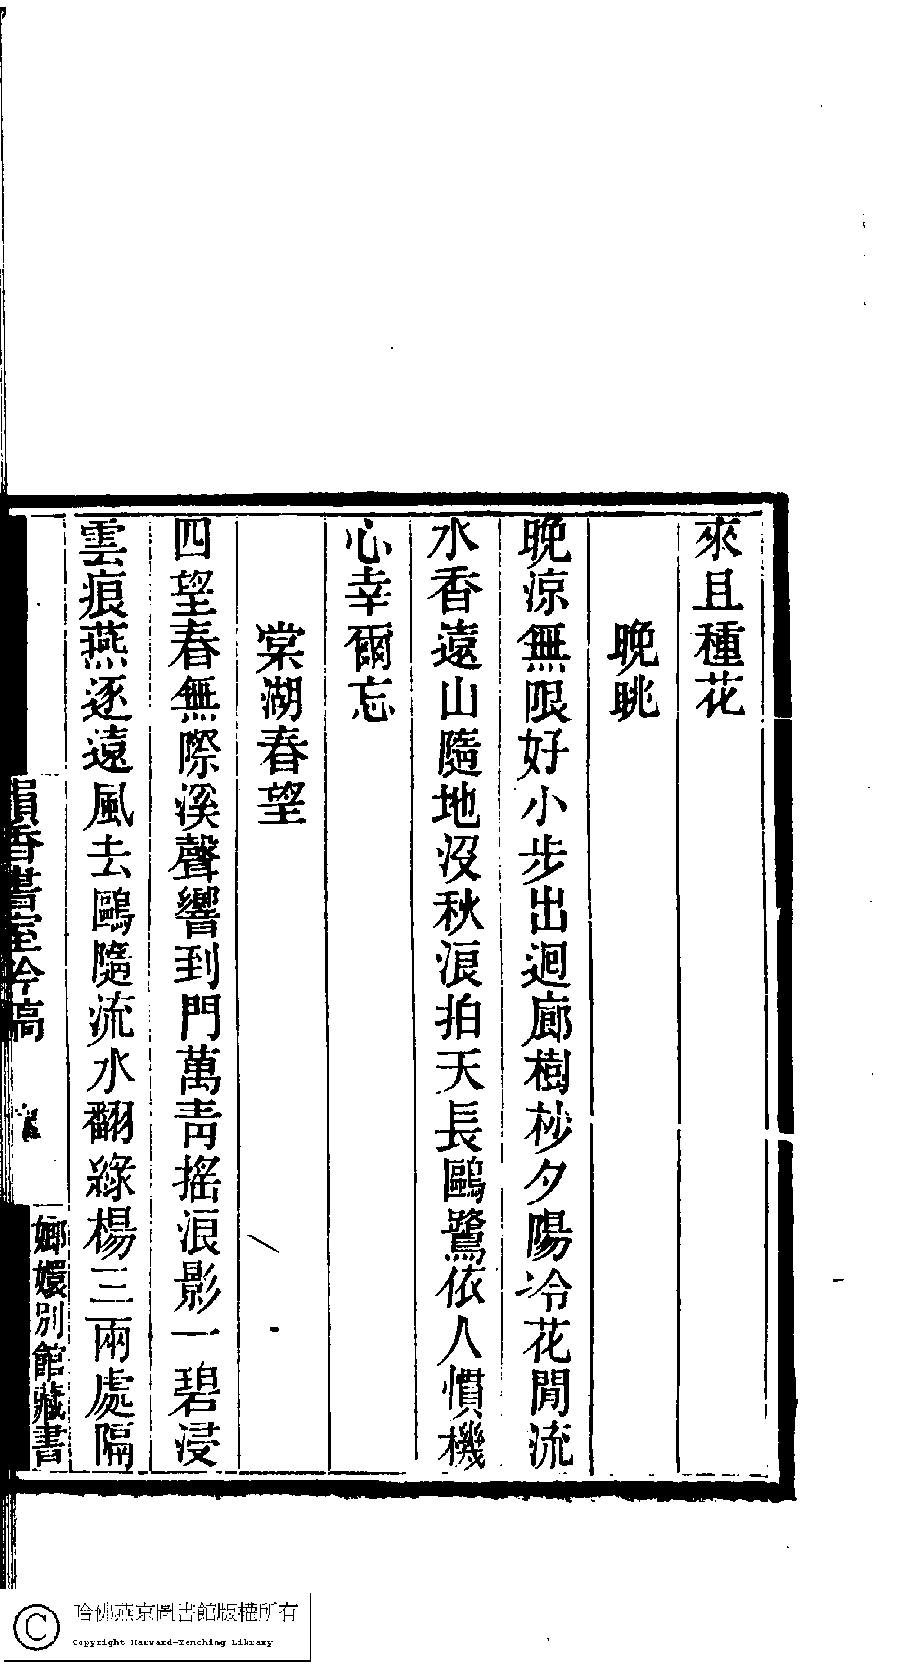 來且種花
晚眺
晚涼無限好小步出迴廊樹杪夕陽冷花閒流
水香遠山隨地沒秋浪拍天長鷗鷺依人慣機
心幸爾忘
棠湖春望
四望春無際溪聲響到門萬靑搖浪影一碧浸
雲痕燕逐遠風去鷗隨流水翻綠楊三兩處隔
韻香書室吟稿
嫏嬛別館藏書
哈佛燕京圖書館版權所有
Copyright Harvard-Yenching Library